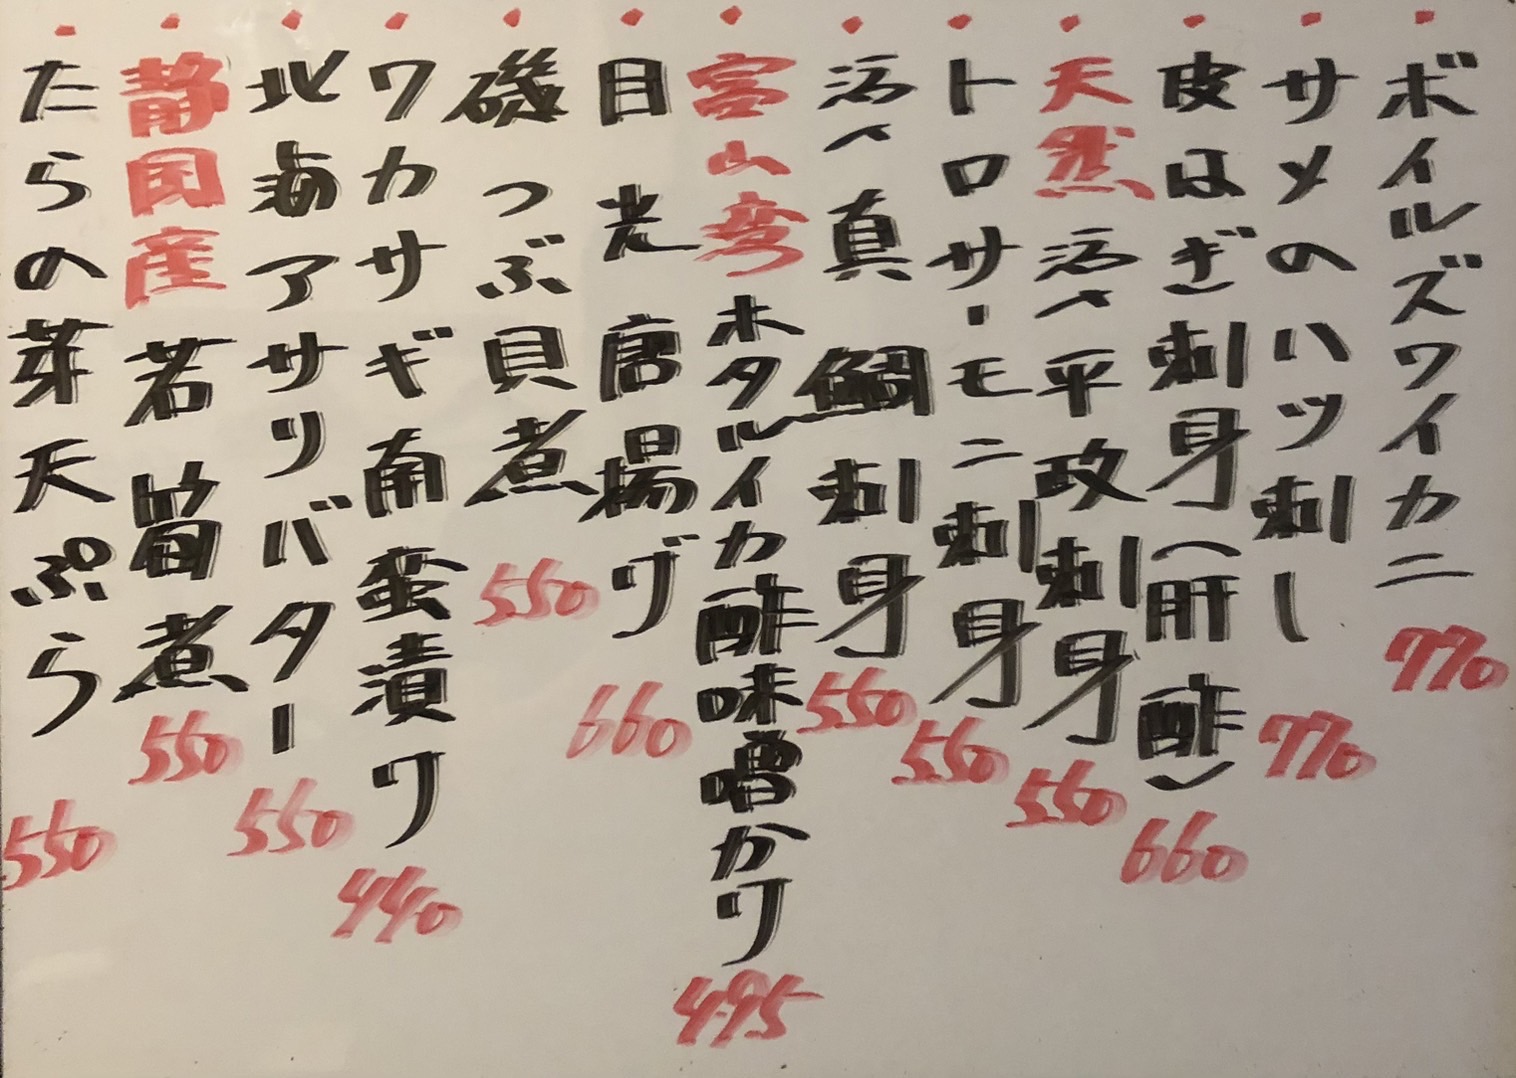 ・ボイルズワイカニ 770
・サメのハツ刺し 770
・皮はぎ刺身(肝酢) 660
・天然活〆平政刺身 550
・トロサーモン刺身 550
・活〆真鯛刺身 550
・富山湾ホタルイカ酢味噌かけ 495
・目光唐揚げ 660
・磯つぶ貝煮 550
・ワカサギ南蛮漬け 440
・北海アサリバター 550
・静岡産若筍煮 550
・たらの芽天ぷら 550